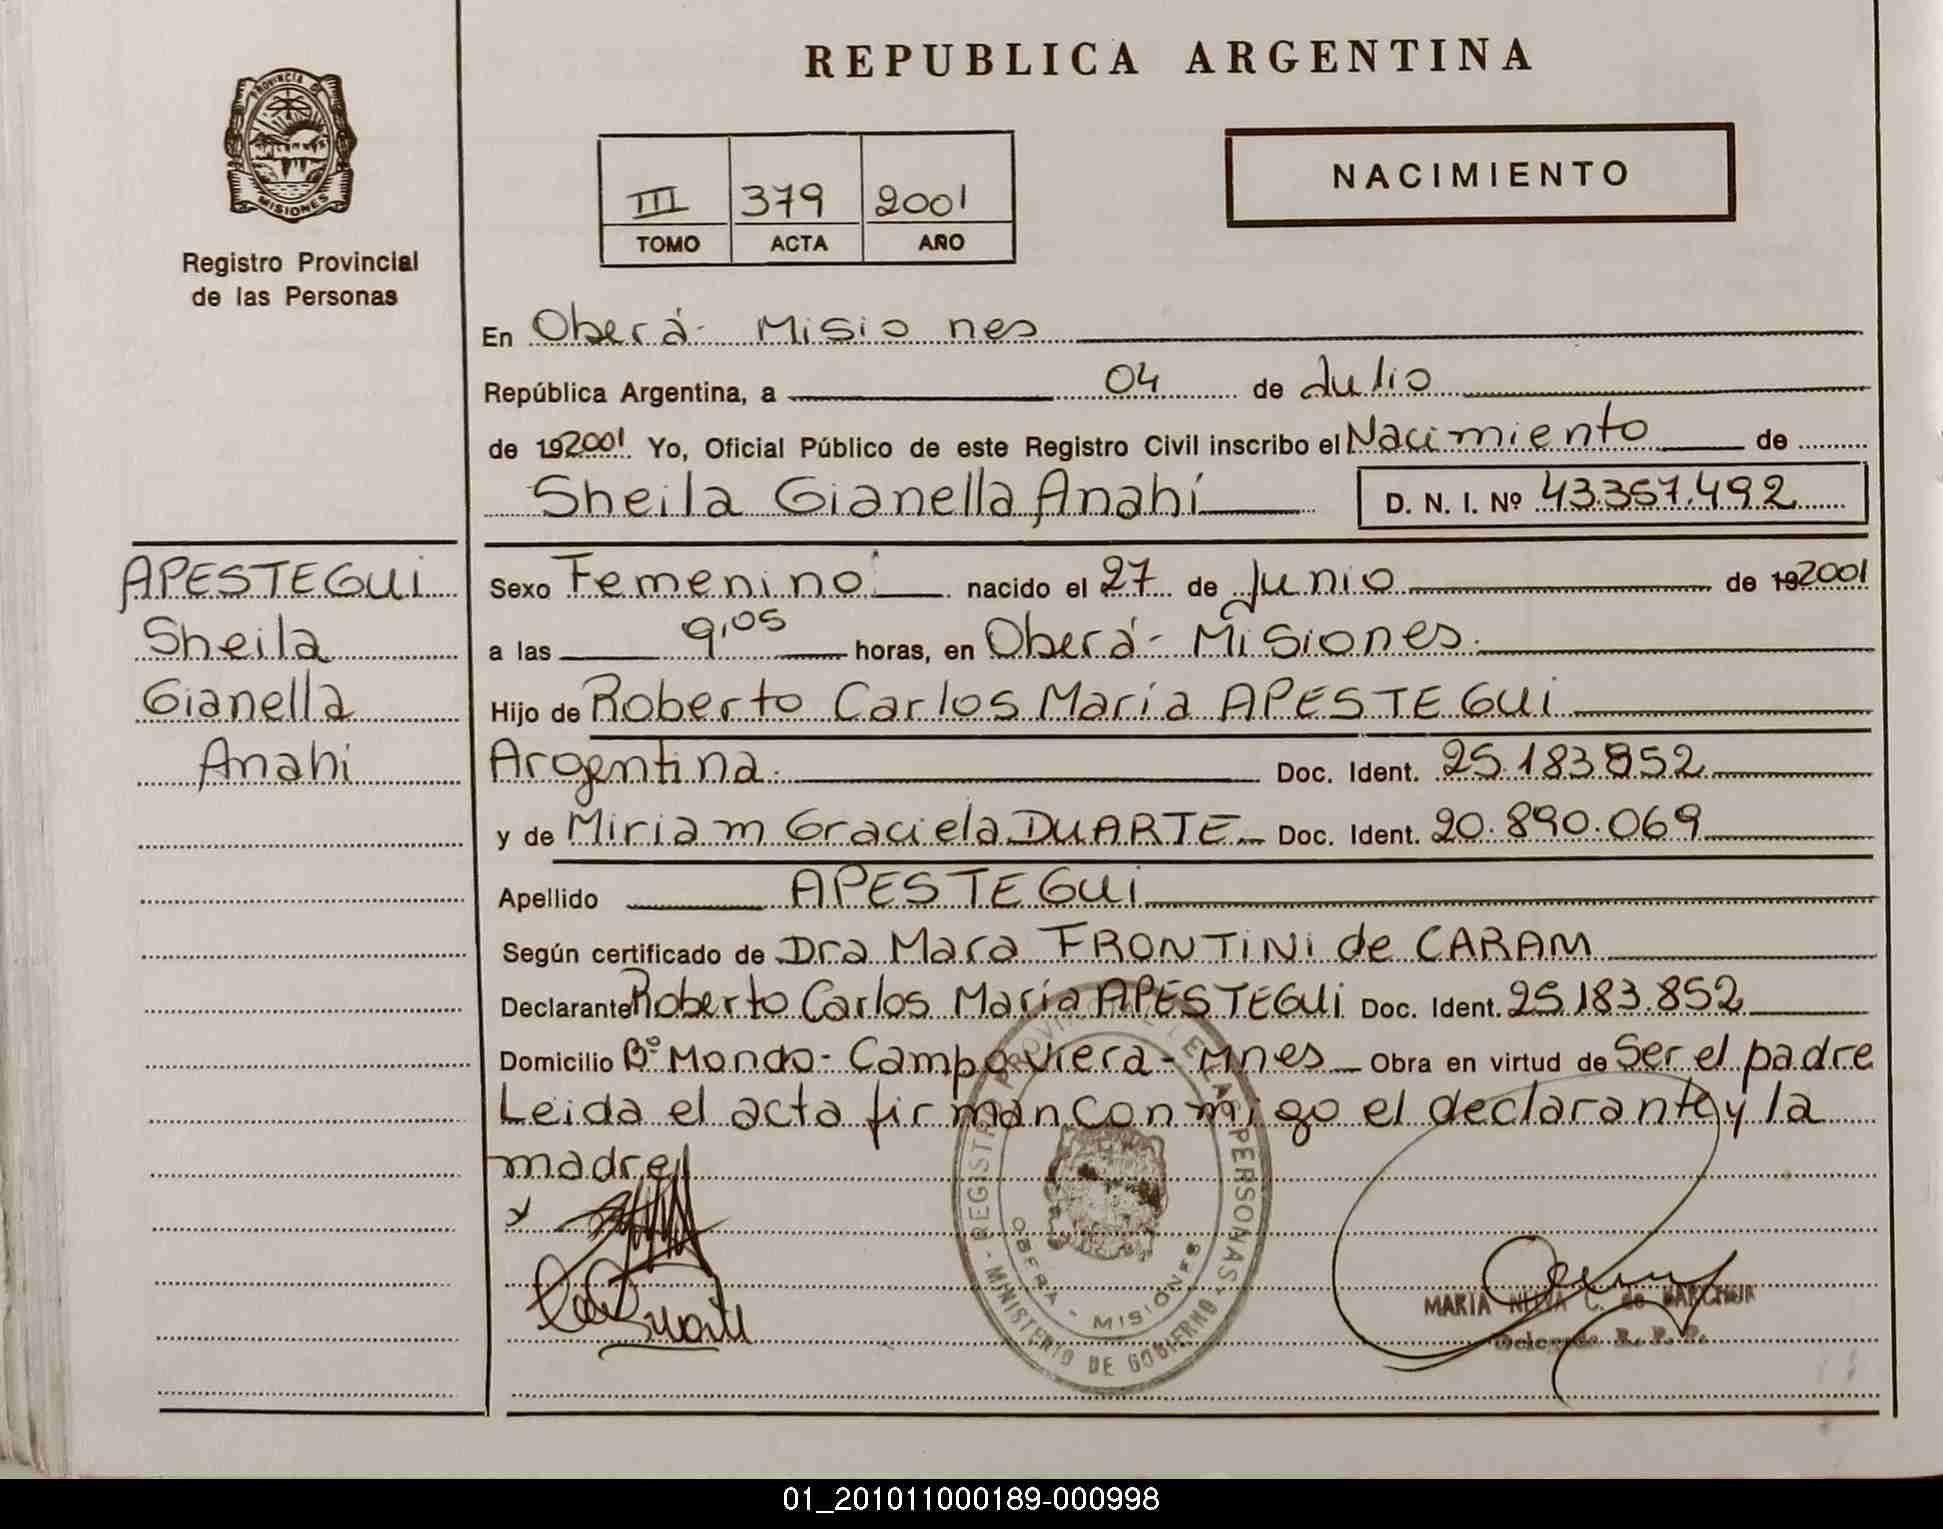 REPUBLICA ARGENTINA
PROVINCIA DE
MISIONES
Registro Provincial
de las Personas
NACIMIENTO
III 379 2001
TOMO ACTA AÑO
En Oberá - Misiones
República Argentina, a 04 de Julio
de 192001 Yo, Oficial Público de este Registro Civil inscribo el Nacimiento de
Sheila Gianella Anahí D. N. I. Nº 43.357.492
APESTEGUI
Sheila
Gianella
Anahi
Sexo Femenino nacido el 27 de Junio de 192001
a las 9,05 horas, en Oberá - Misiones.
Hijo de Roberto Carlos María APESTEGUI
Argentina. Doc. Ident. 25.183.852
y de Miriam Graciela DUARTE Doc. Ident. 20.890.069
Apellido APESTEGUI
Según certificado de Dra Mara FRONTINI de CARAM
Declarante Roberto Carlos María APESTEGUI Doc. Ident. 25.183.852
Domicilio Bº Mondo - Campo Viera - Mnes Obra en virtud de Ser el padre
Leida el acta firman conmigo el declarante y la
madre
REGISTRO PROVINCIAL DE LAS PERSONAS
MINISTERIO DE GOBIERNO
OBERA - MISIONES
MARIA C. de
Delegada R. P. P.
01_201011000189-000998